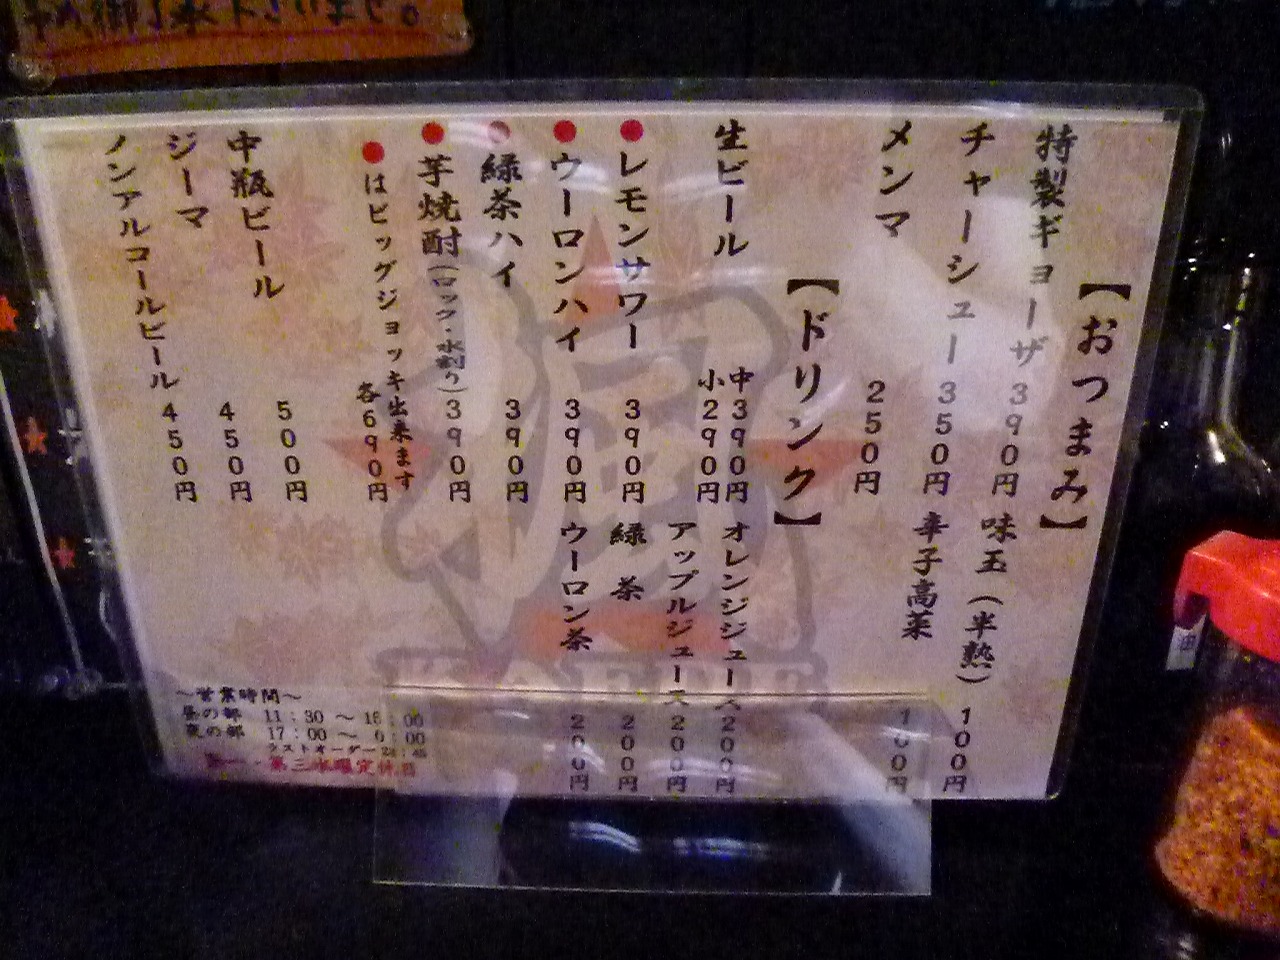 【おつまみ】
特製ギョーザ 390円
チャーシュー 350円
メンマ 250円
味玉（半熟） 100円
辛子高菜 100円
【ドリンク】
生ビール 中390円
小290円
●レモンサワー 390円
●ウーロンハイ 390円
●緑茶ハイ 390円
●芋焼酎（ロック・水割り） 390円
●はビッグジョッキ出来ます
各690円
中瓶ビール 500円
ジーマ 450円
ノンアルコールビール 450円
オレンジジュース 200円
アップルジュース 200円
緑茶 200円
ウーロン茶 200円
～営業時間～
昼の部 11:30 ～ 16:00
夜の部 17:00 ～ 0:00
ラストオーダー
第三水曜定休日